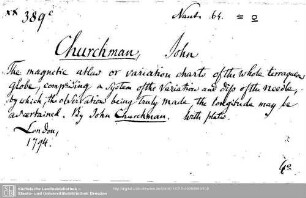 389c
Naut. 64.
Churchman, John
The magnetic atlas or variation charts of the whole terraqueous
globe; comprising a system of the variation and dip of the needle,
by which, the observations being truly made the longitude may be
ascertained. By John Churchman. With plates.
London,
1794.
4o